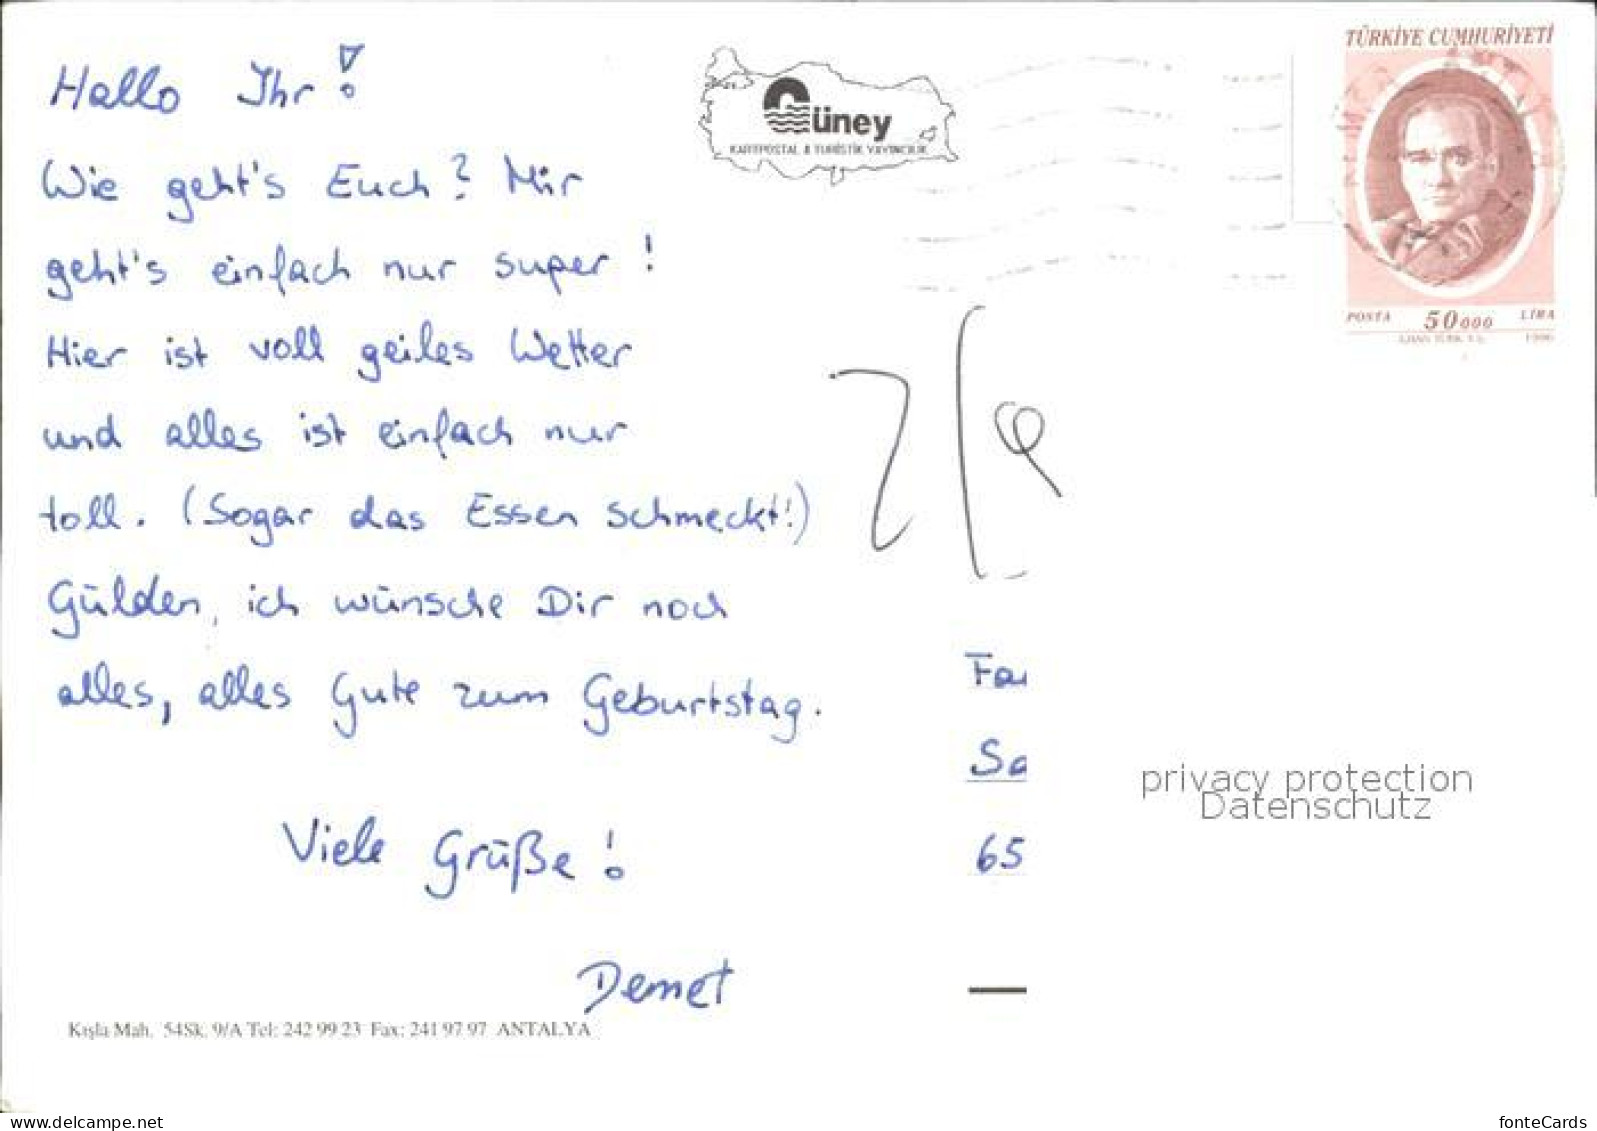 Hallo Ihr!
Wie geht's Euch? Mir
geht's einfach nur super!
Hier ist voll geiles Wetter
und alles ist einfach nur
toll. (Sogar das Essen schmeckt!)
Gülden, ich wünsche Dir noch
alles, alles Gute zum Geburtstag.
Viele Grüße!
Demet
Kışla Mah. 54Sk. 9/A Tel: 242 99 23 Fax: 241 97 97 ANTALYA
Güney
KARTPOSTAL & TURİSTİK YAYINCILIK
TÜRKİYE CUMHURİYETİ
POSTA 50000 LİRA
1996
Fa
Sa
65
privacy protection
Datenschutz
www.delcampe.net
fonteCards